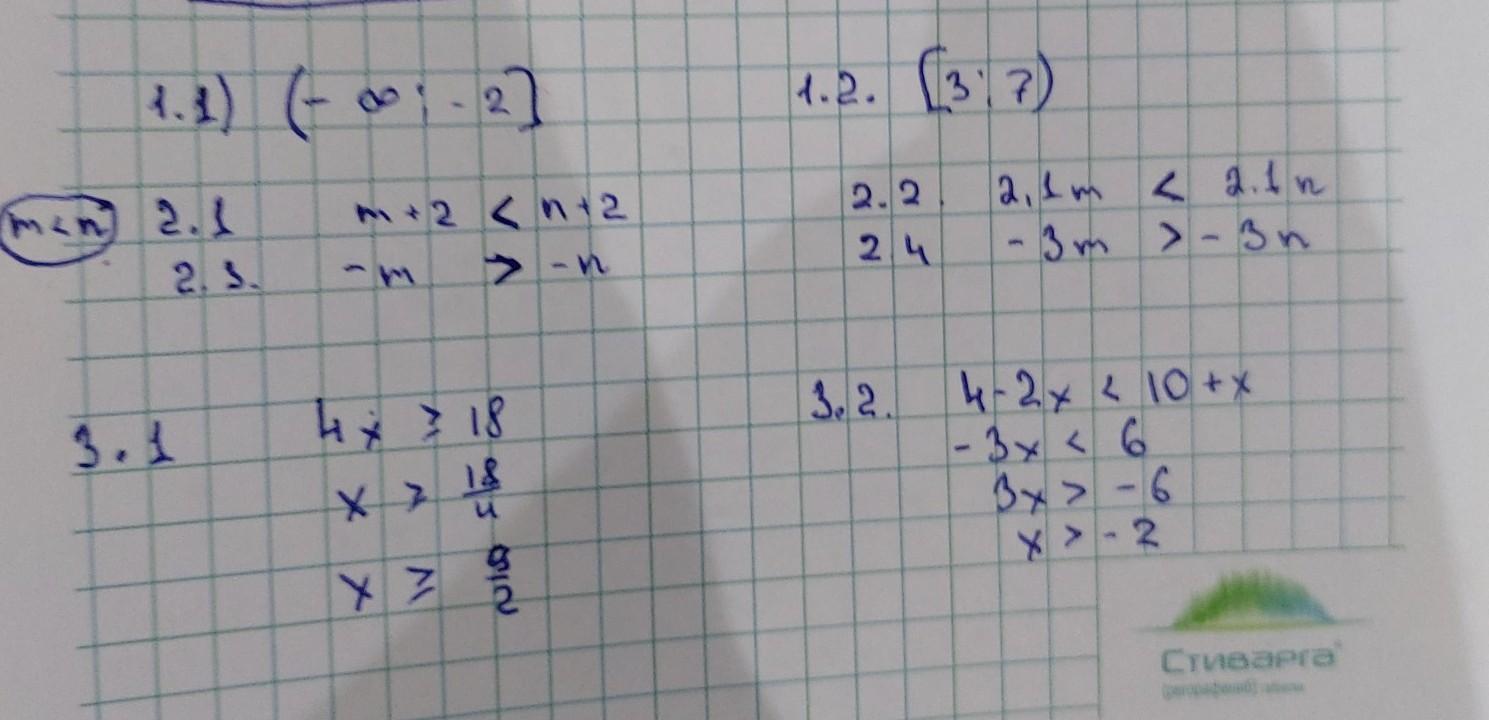 1.1) (-∞; -2]
1.2. [3; 7)
m<n
2.1 m+2 < n+2
2.2 2,1m < 2.1n
2.3. -m > -n
2 4 -3m > -3n
3.1 4x ≥ 18
x ≥ 18/4
x ≥ 9/2
3.2. 4-2x < 10+x
-3x < 6
3x > -6
x > -2
Стиварга